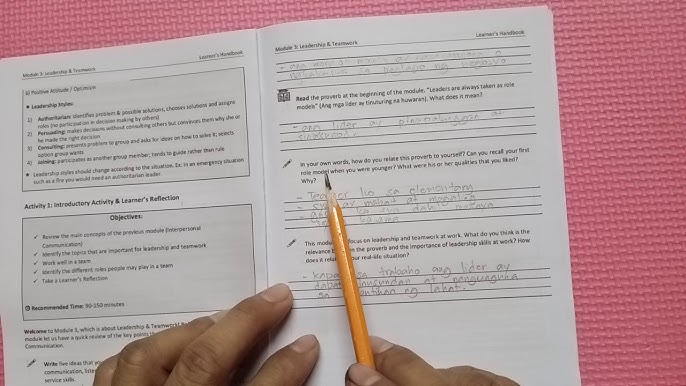 Module 3: Leadership & Teamwork
Learner's Handbook
b) Positive Attitude / Optimism
Leadership Styles:
1) Authoritarian: identifies problem & possible solutions, chooses solutions and assigns
roles (no participation in decision making by others)
2) Persuading: makes decisions without consulting others but convinces them why she or
he made the right decision
3) Consulting: presents problem to group and asks for ideas on how to solve it; selects
option group wants
4) Joining: participates as another group member; tends to guide rather than rule
Leadership styles should change according to the situation. Ex: in an emergency situation
such as a fire you would need an authoritarian leader.
Activity 1: Introductory Activity & Learner's Reflection
Objectives:
✓ Review the main concepts of the previous module (Interpersonal
Communication)
✓ Identify the topics that are important for leadership and teamwork
✓ Work well in a team
✓ Identify the different roles people may play in a team
✓ Take a Learner's Reflection
Recommended Time: 90-150 minutes
Welcome to Module 3, which is about Leadership & Teamwork!
module let us have a quick review of the key points
Communication.
Write five ideas that you
communication, listen
service skills.
Module 3: Leadership & Teamwork
Learner's Handbook
Read the proverb at the beginning of the module. "Leaders are always taken as role
models" (Ang mga lider ay tinuturing na huwaran). What does it mean?
- ang lider ay
In your own words, how do you relate this proverb to yourself? Can you recall your first
role model when you were younger? What were his or her qualities that you liked?
Why?
- Teacher ko sa elementary
- mabait at magaling
This module focus on leadership and teamwork at work. What do you think is the
relevance the proverb and the importance of leadership skills at work? How
does it relate your real-life situation?
- kapag sa trabaho ang lider ay
ng lahat.